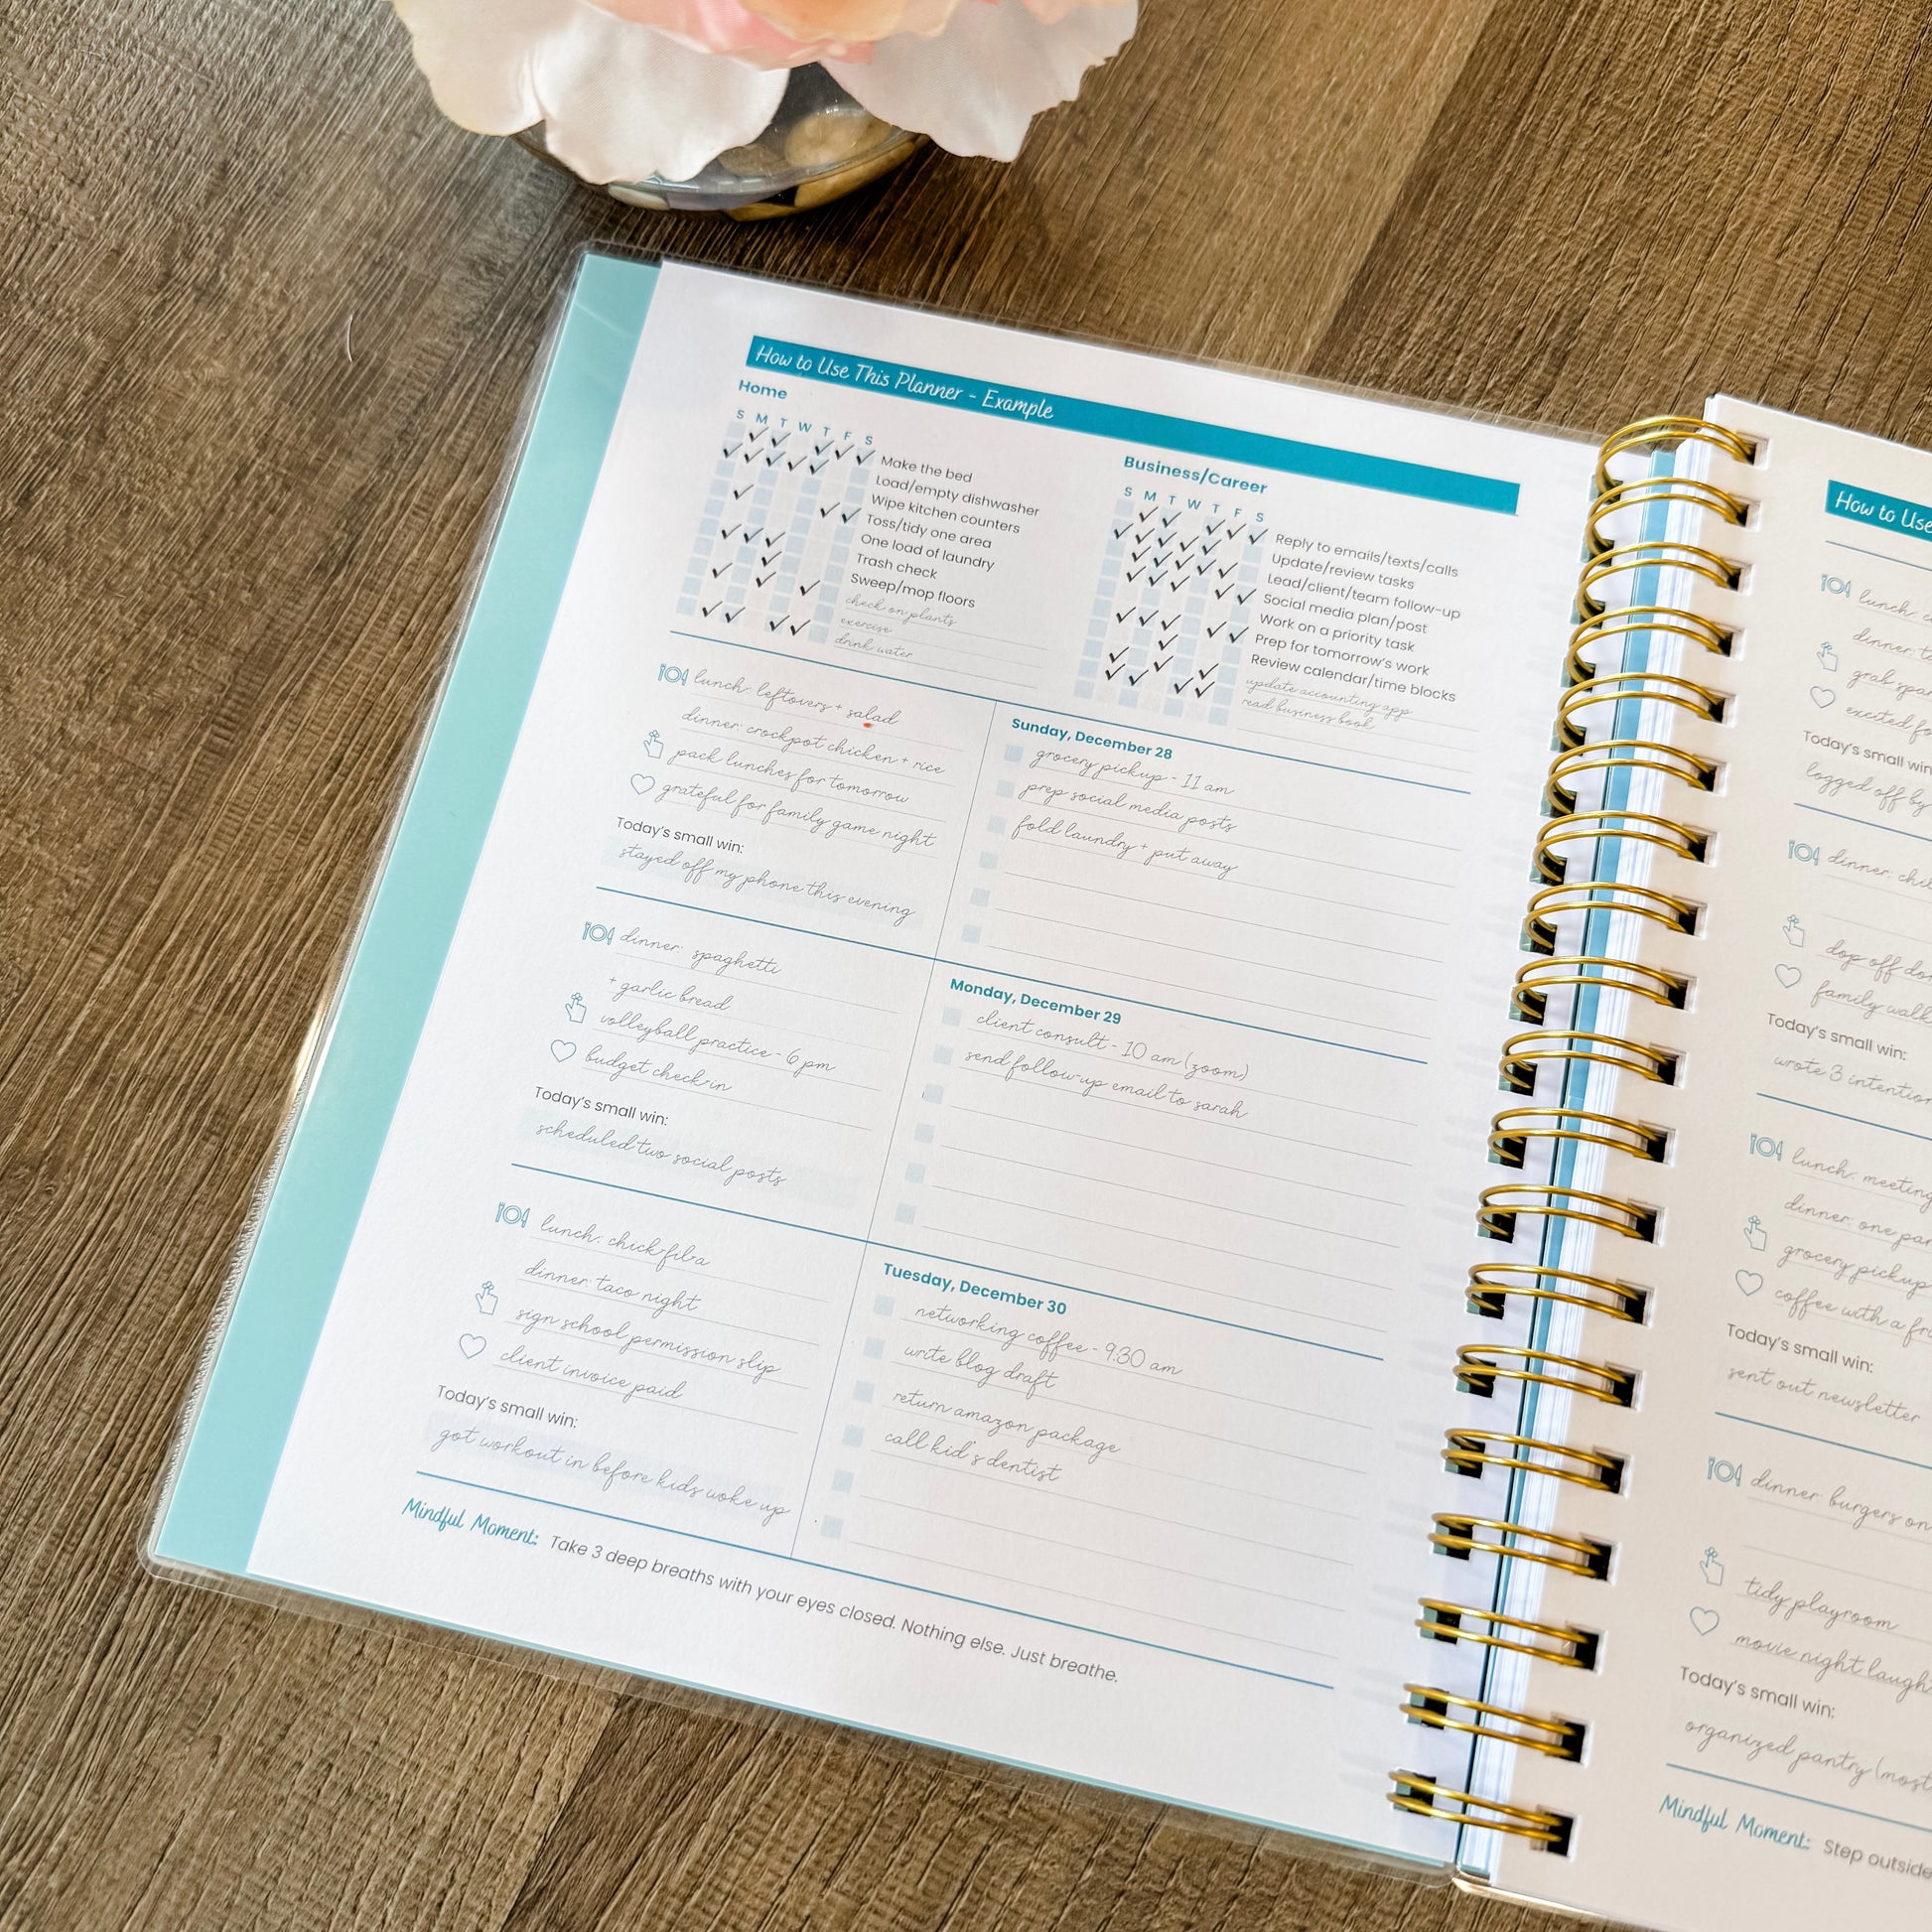 How to Use This Planner - Example
Home
S M T W T F S
Make the bed
Load/empty dishwasher
Wipe kitchen counters
Toss/tidy one area
One load of laundry
Trash check
Sweep/mop floors
check on plants
exercise
drink water
Business/Career
S M T W T F S
Reply to emails/texts/calls
Update/review tasks
Lead/client/team follow-up
Social media plan/post
Work on a priority task
Prep for tomorrow's work
Review calendar/time blocks
update accounting app
read business book
lunch: leftovers + salad
dinner: crockpot chicken + rice
pack lunches for tomorrow
grateful for family game night
Today's small win:
stayed off my phone this evening
Sunday, December 28
grocery pickup - 11 am
prep social media posts
fold laundry + put away
dinner: spaghetti
+ garlic bread
volleyball practice - 6 pm
budget check-in
Today's small win:
scheduled two social posts
Monday, December 29
client consult - 10 am (zoom)
send follow-up email to sarah
lunch: chick-fil-a
dinner: taco night
sign school permission slip
client invoice paid
Today's small win:
got workout in before kids woke up
Tuesday, December 30
networking coffee - 9:30 am
write blog draft
return amazon package
call kid's dentist
Mindful Moment: Take 3 deep breaths with your eyes closed. Nothing else. Just breathe.
How to Use
lunch:
dinner:
grab
excited
Today's small win
logged off by
dinner:
dop off
family walk
Today's small win:
wrote 3
lunch: meeting
dinner: one
grocery pickup
coffee with a
Today's small win:
sent out newsletter
dinner: burgers on
tidy playroom
movie night
Today's small win:
organized pantry
Mindful Moment: Step outside